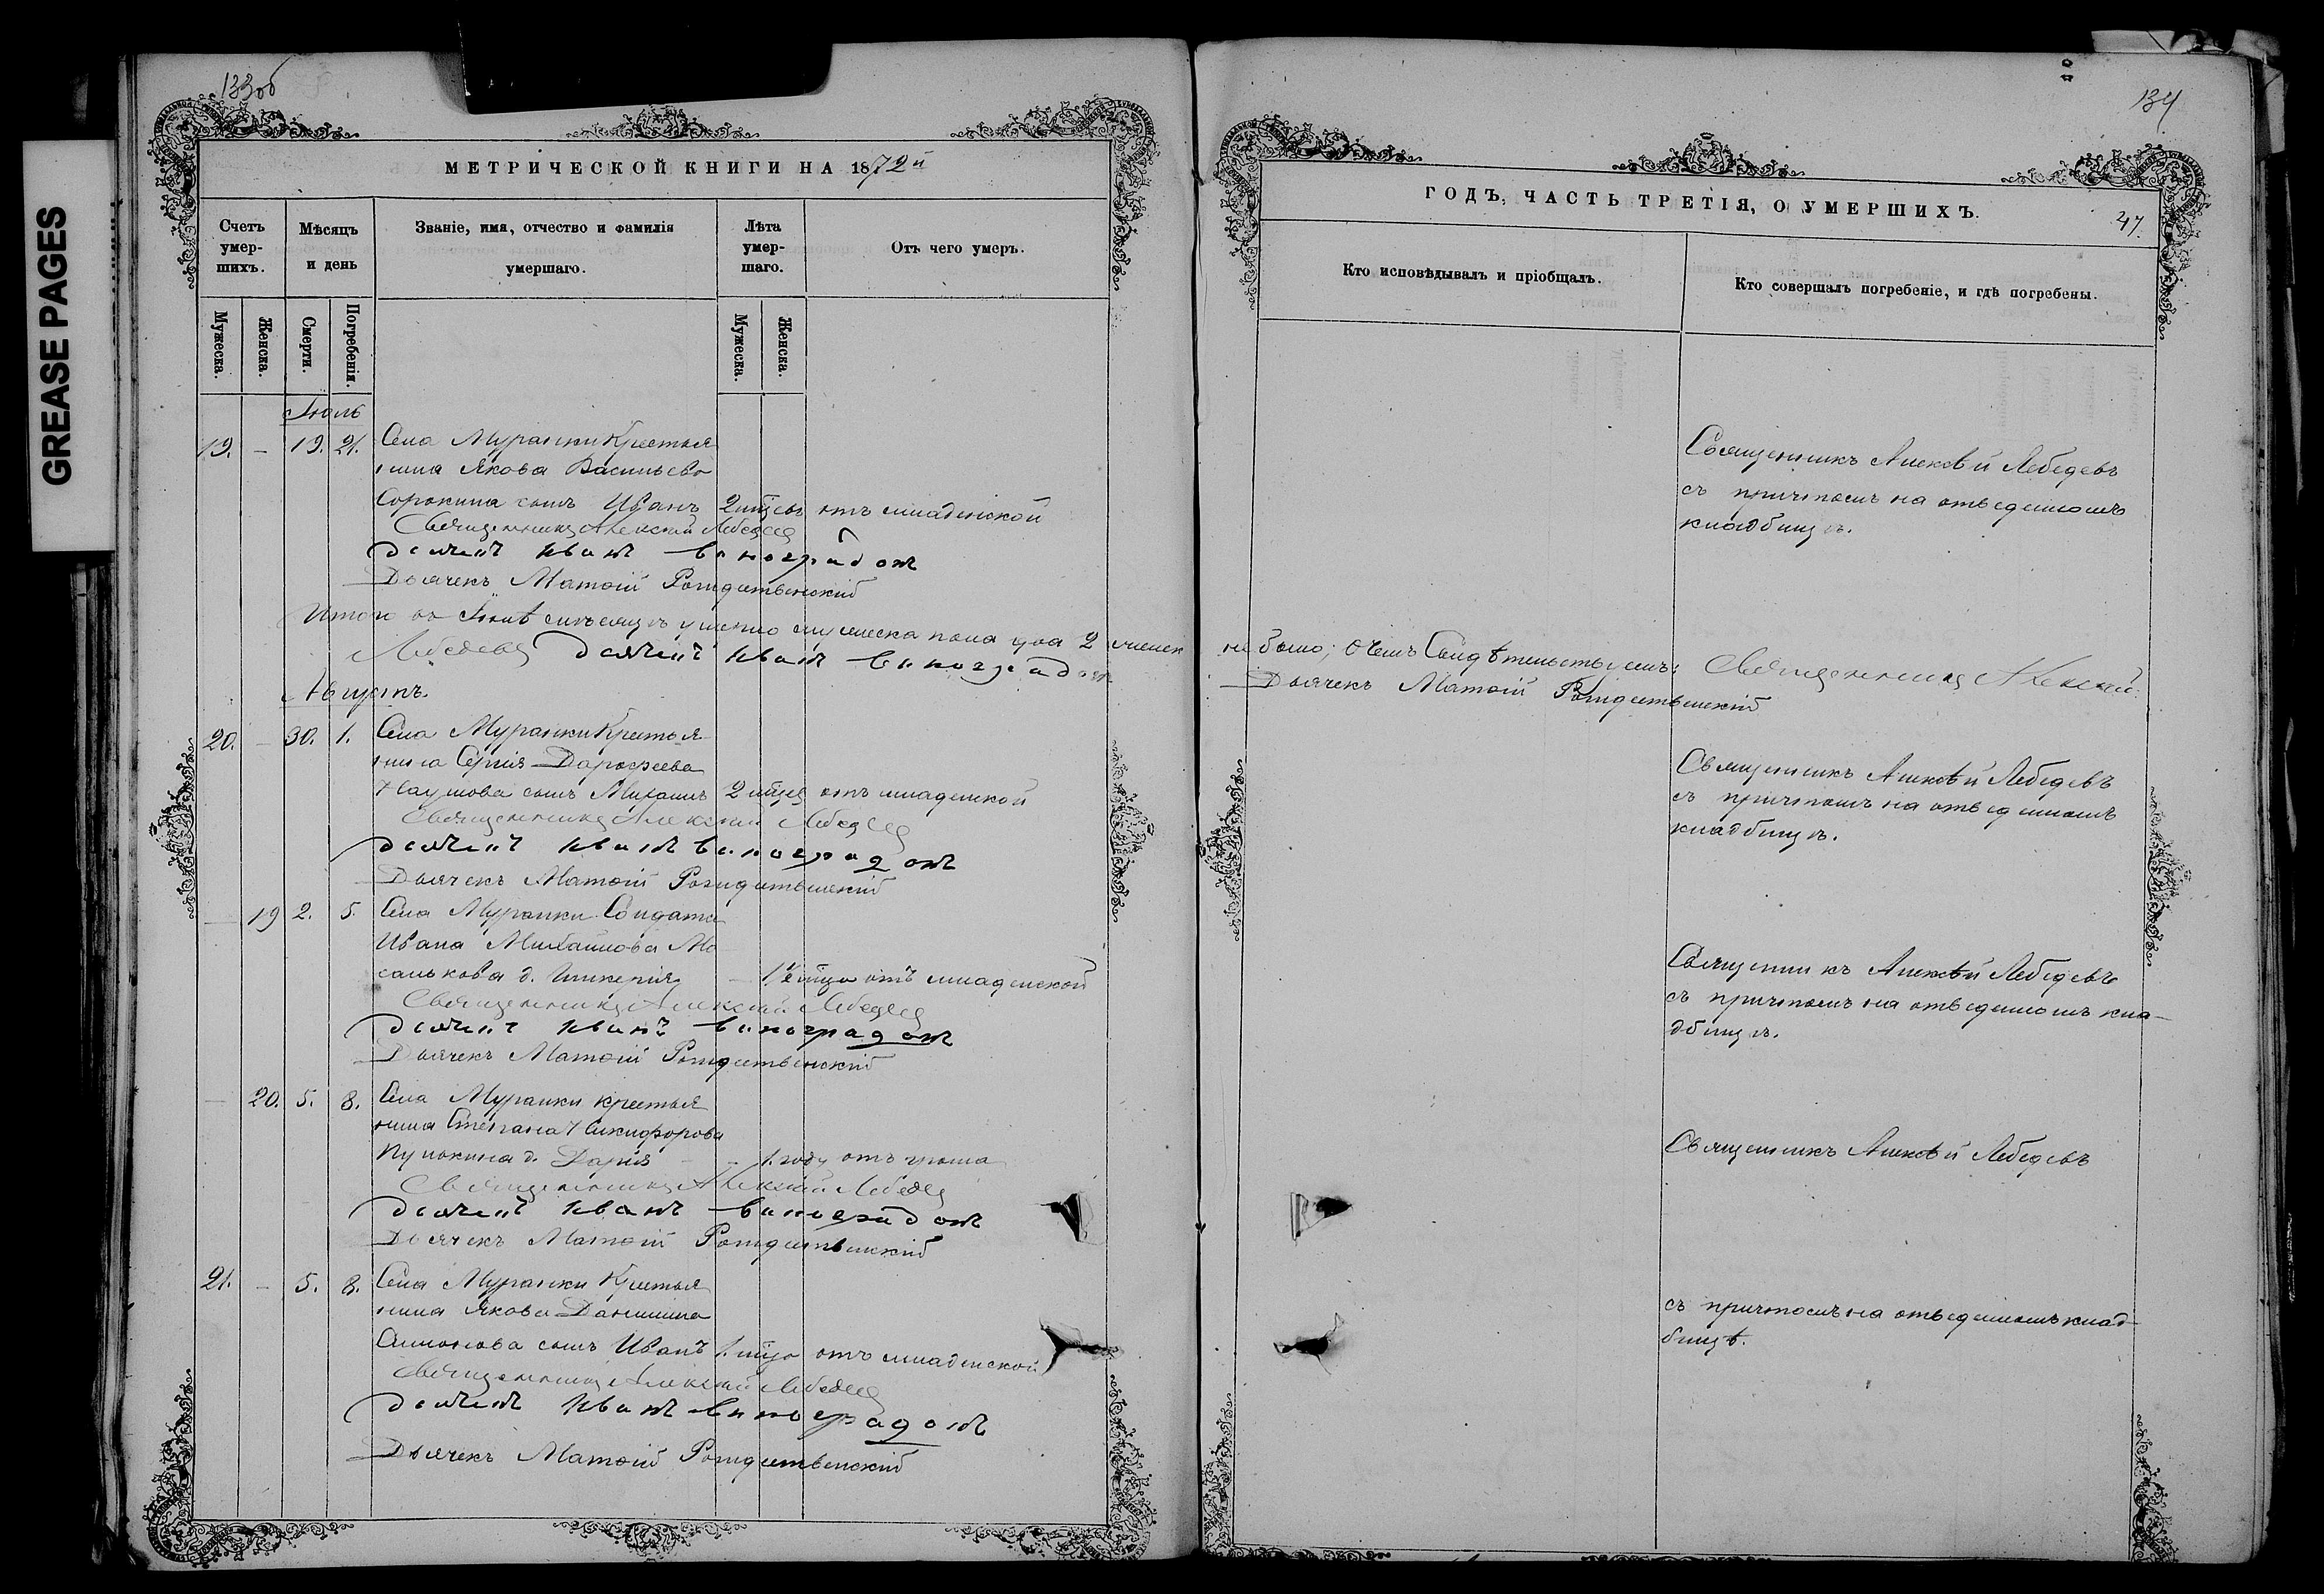 GREASE PAGES
133об
МЕТРИЧЕСКОЙ КНИГИ НА 1872й
Счетъ умер-шихъ.
Мѣсяцъ и день
Званіе, имя, отчество и фамилія умершаго.
Лѣта умер-шаго.
Отъ чего умеръ.
Мужеска.
Женска.
Смерти.
Погребенія.
Мужеска.
Женска.
Іюль
19. - 19. 21. Села Муранки Крестья
нина Якова Васильева
Сорокина сынъ Иванъ 2 мѣсяц отъ младенской
Священникъ Алексей Лебедев
дьячекъ Иванъ Виноградовъ
Дьячекъ Матѳій Рождественскій
Итого въ Іюлѣ мѣсяцѣ умерло мужеска пола два 2 женск
Лебедевъ дьячекъ Иванъ Виноградовъ
Августъ.
20. - 30. 1. Села Муранки Крестья
нина Сергія Дарофеева
Наумова сынъ Михаилъ 2 мѣся отъ младенской
Священникъ Алексей Лебедев
дьячекъ Иванъ Виноградовъ
Дьячекъ Матѳій Рождественскій
- 19 2. 5. Села Муранки Солдата
Ивана Михайлова Мо
салькова д. Гликерія - 1½ отъ младенской
Священникъ Алексей Лебедев
дьячекъ Иванъ Виноградовъ
Дьячекъ Матѳій Рождественскій
- 20. 5. 8. Села Муранки крестья
нина Степана Никифорова
д. Дарія - 1. году отъ
Священникъ Алексей Лебедев
дьячекъ Иванъ Виноградовъ
Дьячекъ Матѳій Рождественскій
21. - 5. 8. Села Муранки Крестья
нина Якова Данилина
сынъ Иванъ 1. отъ младенской
Священникъ Алексей Лебедев
дьячекъ Иванъ Виноградовъ
Дьячекъ Матѳій Рождественскій
134
ГОДЪ, ЧАСТЬ ТРЕТІЯ, О УМЕРШИХЪ.
47.
Кто исповѣдывалъ и пріобщалъ.
Кто совершалъ погребеніе, и гдѣ погребены.
Священникъ Алексѣй Лебедевъ
съ причтомъ на отведенномъ
кладбищѣ.
не было; о чемъ Свидѣтельствуемъ: Священникъ Алексей
Дьячекъ Матѳій Рождественскій
Священникъ Алексѣй Лебедевъ
съ причтомъ на отведенномъ
кладбищѣ.
Священникъ Алексѣй Лебедевъ
съ причтомъ на отведенномъ кла-
дбищѣ.
Священникъ Алексѣй Лебедевъ
съ причтомъ на отведенномъ клад-
бищѣ.